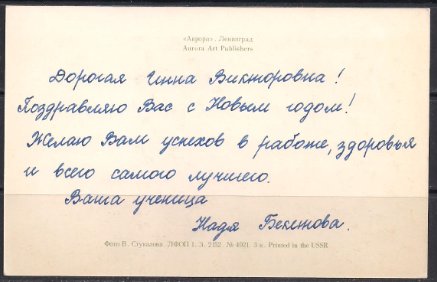 «Аврора». Ленинград
Aurora Art Publishers
Дорогая Инна Викторовна!
Поздравляю Вас с Новым годом!
Желаю Вам успехов в работе, здоровья
и всего самого лучшего.
Ваша ученица
Надя Бекетова.
Фото В. Стукалова. ЛФОП 1. З. 2152. № 4921. 3 к. Printed in the USSR